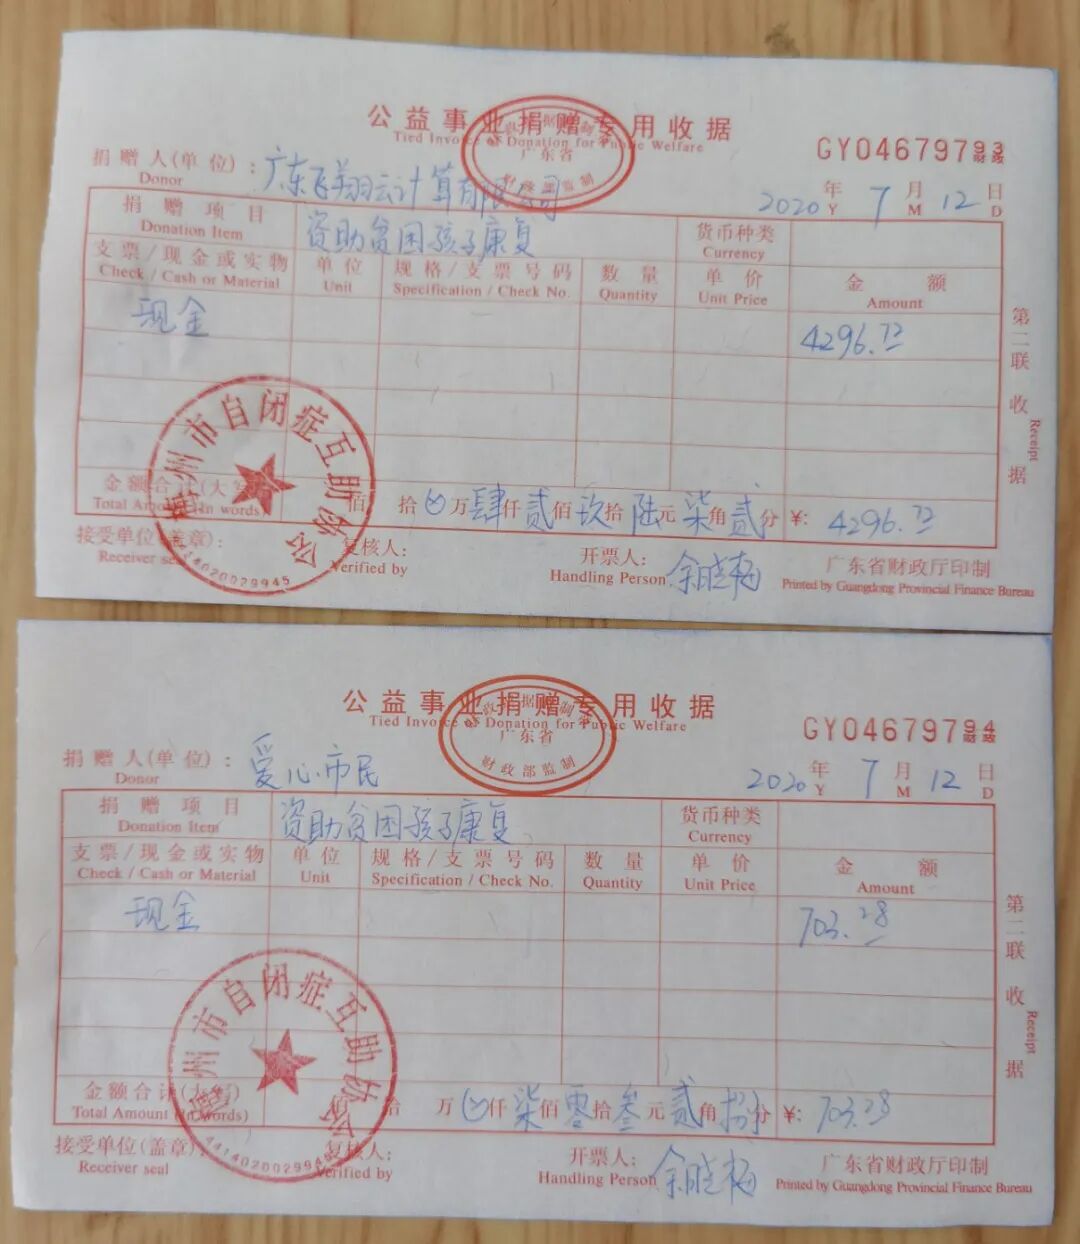 公益事业捐赠专用收据
Tied Invoice of Donation for Public Welfare
广东省
财政部监制
GY04679793
捐赠人(单位): 广东飞翔云计算有限公司
Donor
2020年7月12日
Y M D
捐赠项目 资助贫困孩子康复 货币种类
Donation Item Currency
支票/现金或实物 单位 规格/支票号码 数量 单价 金额
Check / Cash or Material Unit Specification / Check No. Quantity Unit Price Amount
现金 4296.72
第二联 收据
Receipt
州市自闭症互助协会
4414020029945
金额合计(大写) 佰 拾 万肆仟贰佰玖拾陆元柒角贰分 ¥: 4296.72
Total Amount (In words)
接受单位(盖章): 复核人: 开票人: 余晓梅 广东省财政厅印制
Receiver seal Verified by Handling Person Printed by Guangdong Provincial Finance Bureau
公益事业捐赠专用收据
Tied Invoice of Donation for Public Welfare
广东省
财政部监制
GY04679794
捐赠人(单位): 爱心市民
Donor
2020年7月12日
Y M D
捐赠项目 资助贫困孩子康复 货币种类
Donation Item Currency
支票/现金或实物 单位 规格/支票号码 数量 单价 金额
Check / Cash or Material Unit Specification / Check No. Quantity Unit Price Amount
现金 703.28
第二联 收据
Receipt
州市自闭症互助协会
4414020029945
金额合计(大写) 佰 拾 万 仟柒佰零拾叁元贰角捌分 ¥: 703.28
Total Amount (In words)
接受单位(盖章): 复核人: 开票人: 余晓梅 广东省财政厅印制
Receiver seal Verified by Handling Person Printed by Guangdong Provincial Finance Bureau